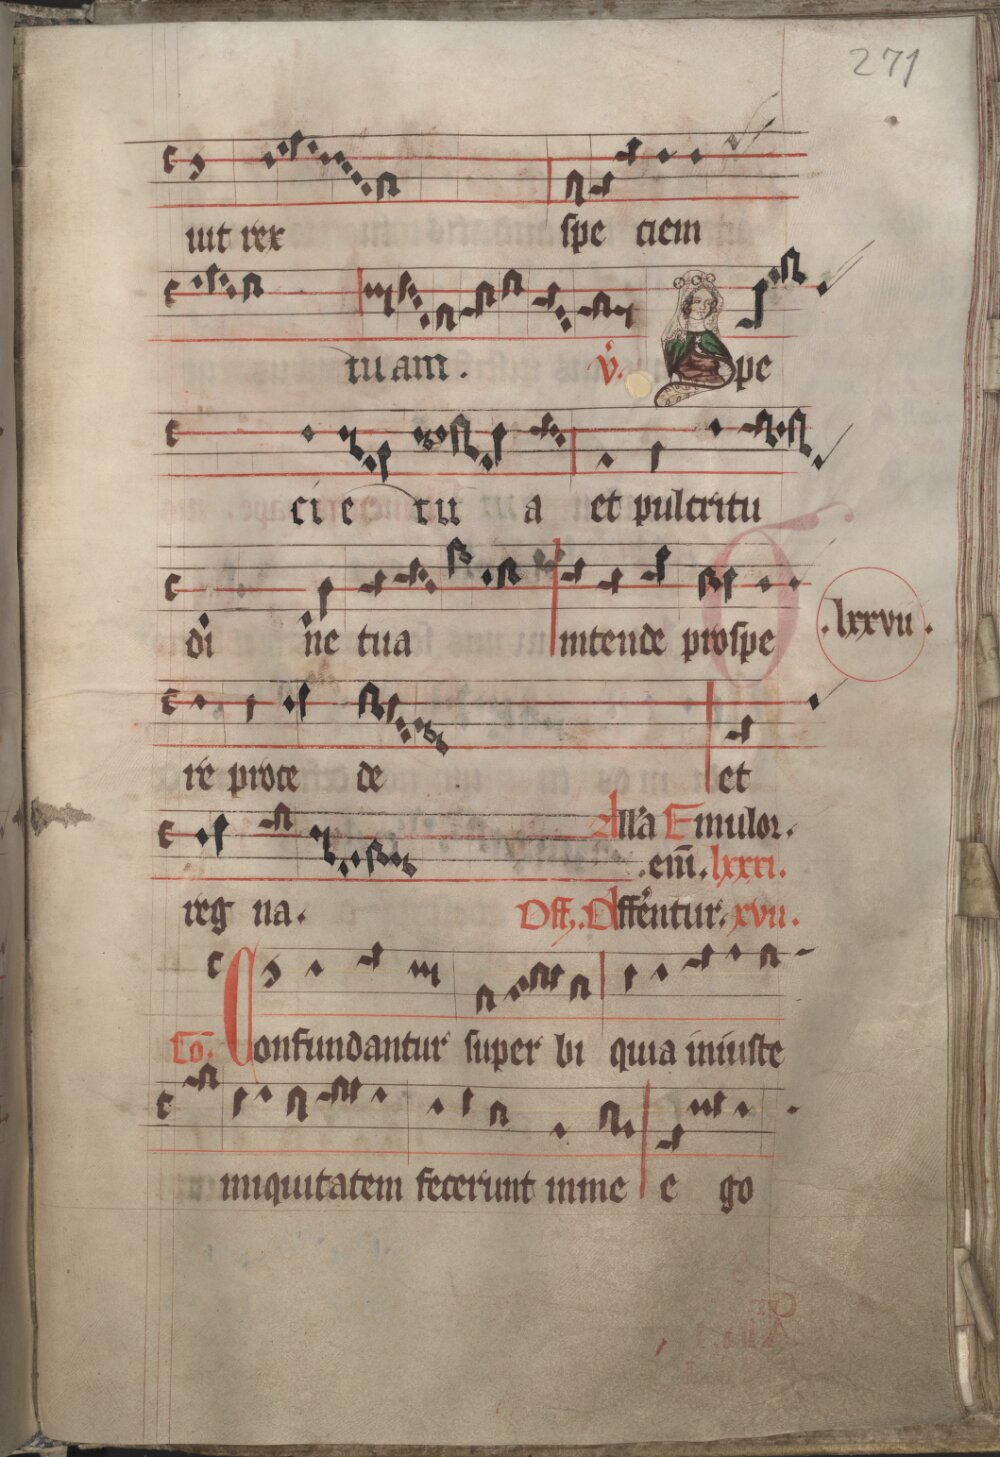 271
uit rex spe ciem
tu am. v. Spe
ci e tu a et pulcritu
di ne tua intende prospe
.lxxvii.
re proce de et
Alla Emulor.
.em. lxxxi.
reg na. Off. Offerentur. xvii.
Co. Confundantur super bi quia iniuste
iniquitatem fecerunt in me e go